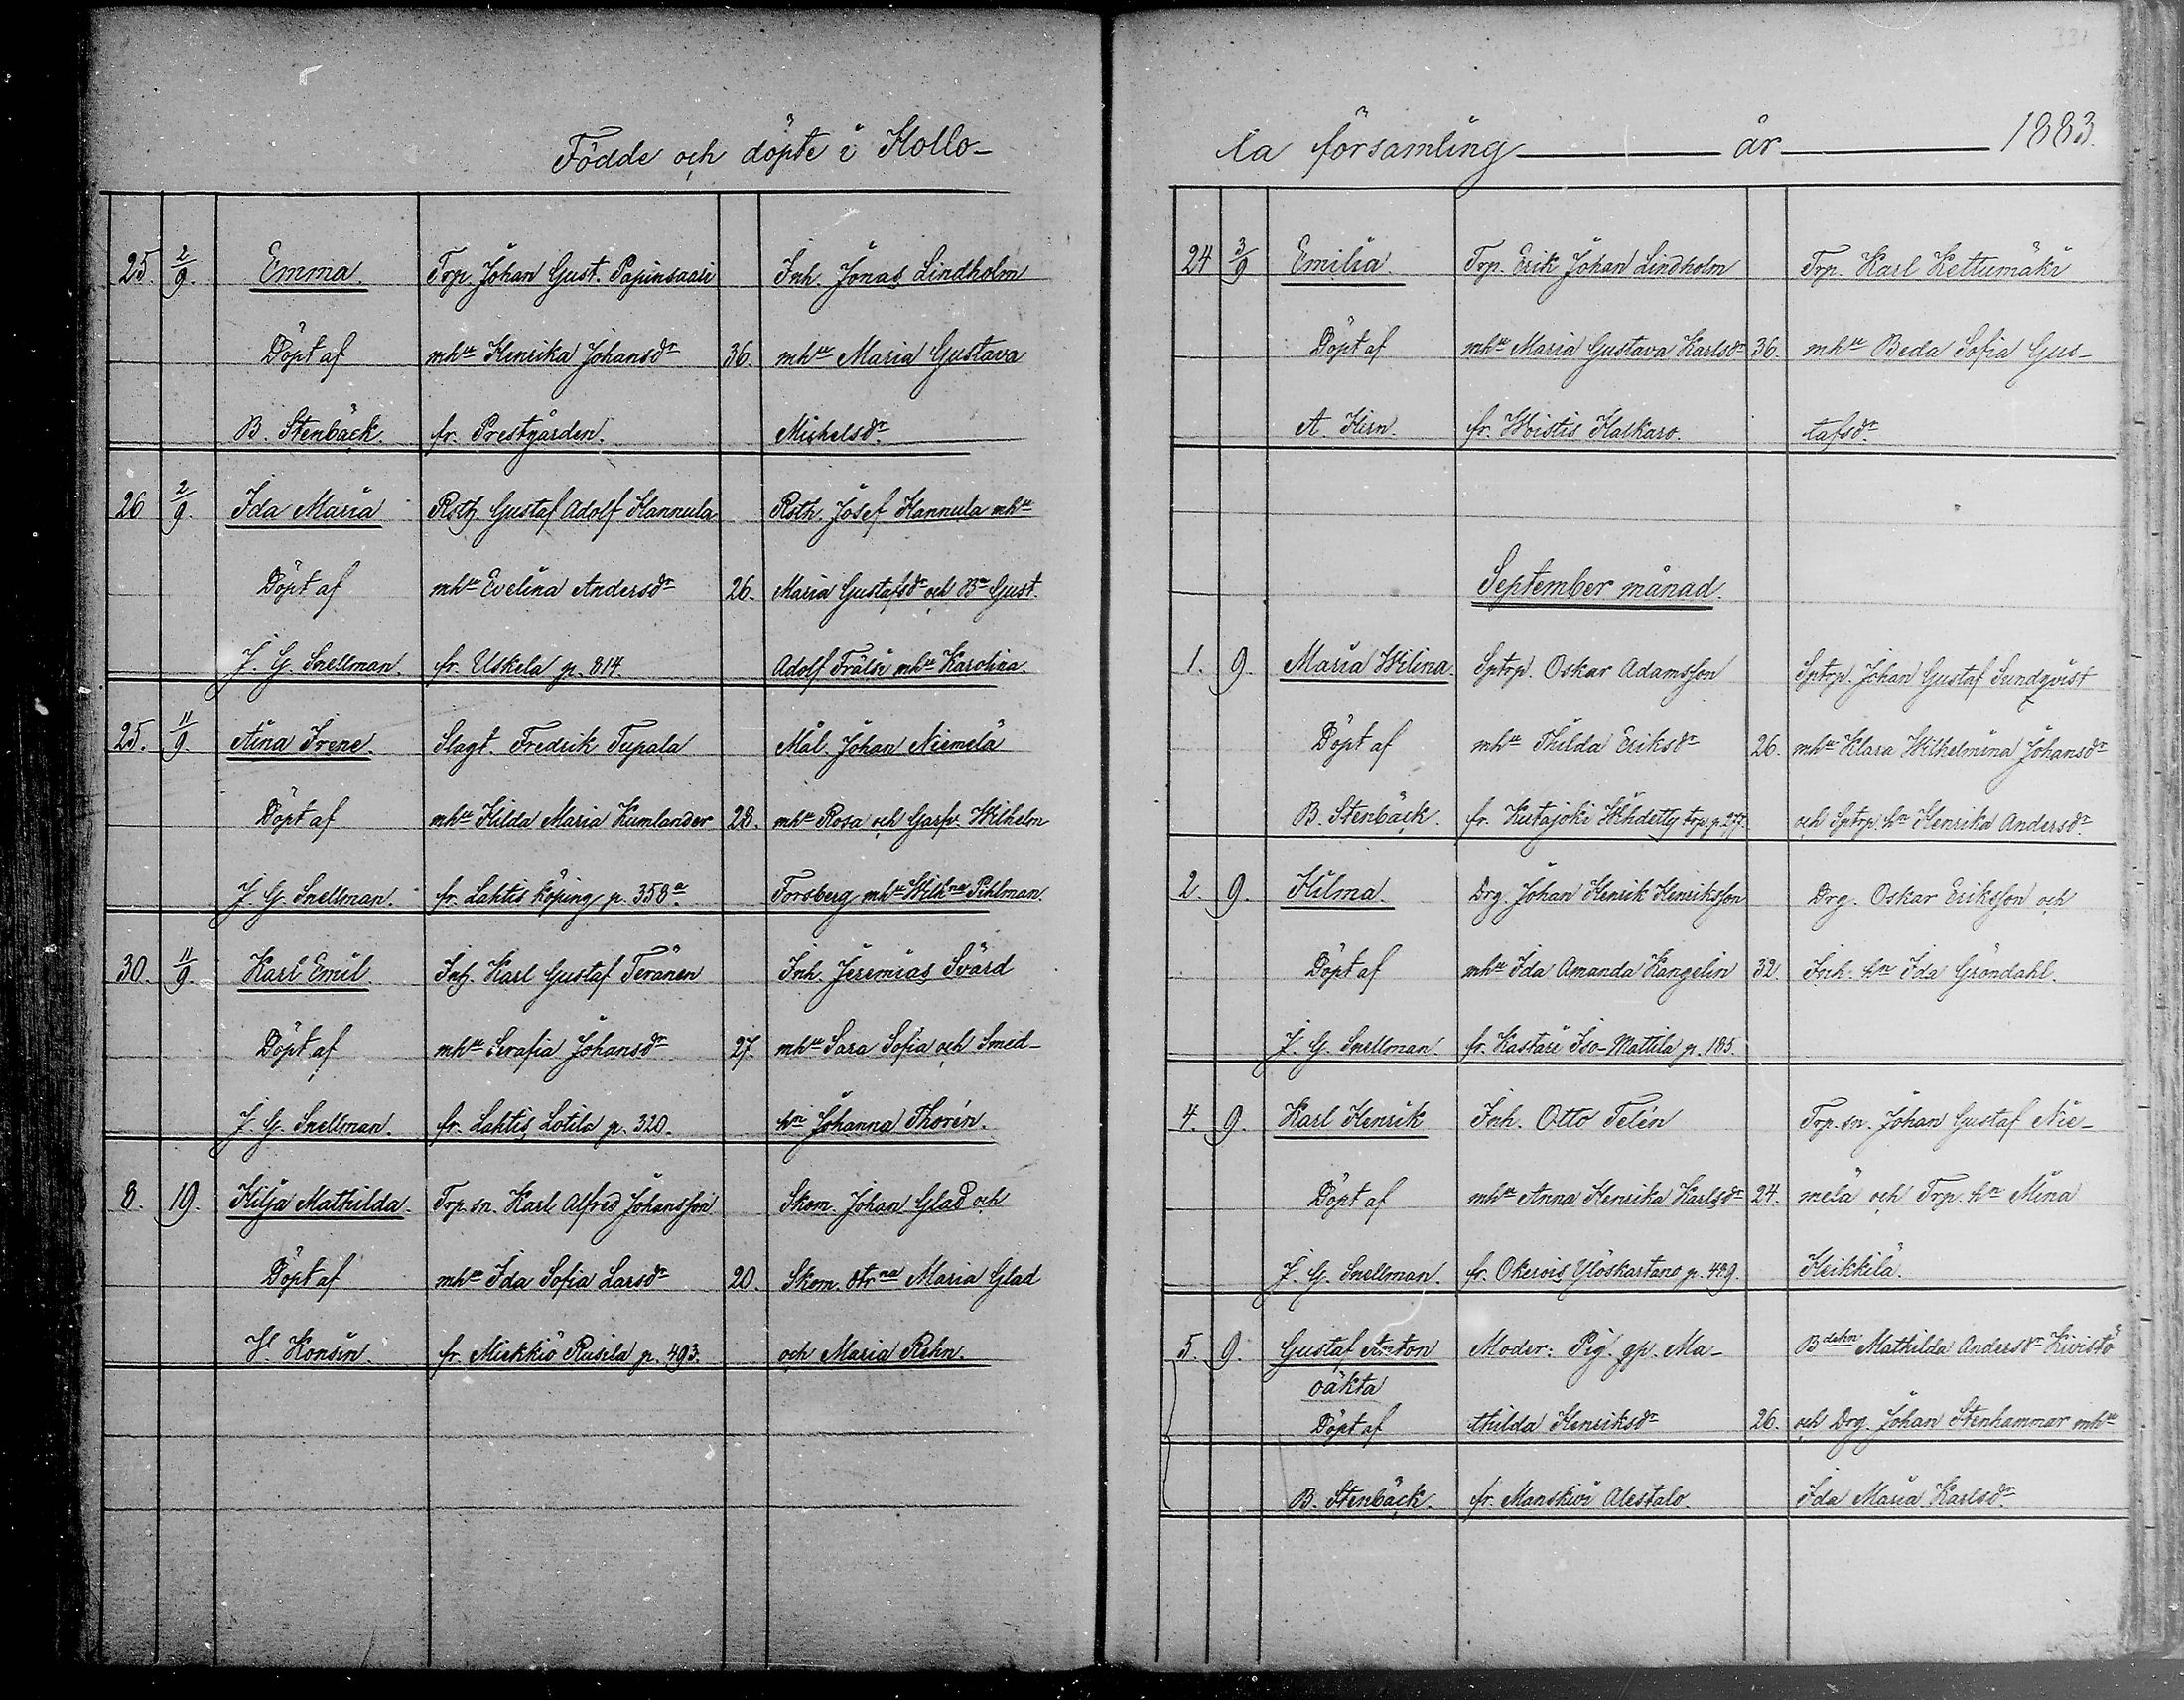 Födde och döpte i Hollo-
25. 2/9. Emma. Trp. Johan Gust. Papinsaari Inh. Jonas Lindholm
Döpt af mhu Henrika Johansdr 36. mhu Maria Gustava
B. Stenbäck. fr. Prestgården. Michelsdr.
26 2/9. Ida Maria Rsth. Gustaf Adolf Hannula Rsth. Josef Hannula mhu
Döpt af mhu Evelina Andersdr 26. Maria Gustafsdr och Bn Gust.
J. G. Snellman. fr. Uskela p. 814. Adolf Frälsi mhu Karolina.
25. 11/9. Aina Irene. Slagt. Fredrik Tupala Mål. Johan Niemelä
Döpt af mhu Hilda Maria Kumlander 28. mhu Rosa och Garfv. Wilhelm
J. G. Snellman. fr. Lahtis köping p. 358a Forsberg mhu Wilhna Pihlman.
30. 11/9. Karl Emil. Inh. Karl Gustaf Teränen Inh. Jeremias Svärd
Döpt af mhu Serafia Johansdr 27. mhu Sara Sofia och Smed-
J. G. Snellman. fr. Lahtis, Lotila p. 320. hn Johanna Thorén.
8. 19. Hilja Mathilda. Trp. sn. Karl Alfred Johansson Skom. Johan Glad och
Döpt af mhu Ida Sofia Larsdr 20. Skom. dtrna Maria Glad
H. Konsin. fr. Miekkiö Rusila p. 493. och Maria Rehn.
331
la församling år 1883.
24 3/9 Emilia. Trp. Erik Johan Lindholm Trp. Karl Kettumäki
Döpt af mhu Maria Gustava Karlsdr 36. mhu Beda Sofia Gus-
A. Hirn. fr. Woistis Kalkaro. tafsdr.
September månad.
1. 9. Maria Wilina. Sptrp. Oskar Adamsson Sptrp. Johan Gustaf Sundqvist
Döpt af mhu Thilda Eriksdr 26. mhu Klara Wilhelmina Johansdr
B. Stenbäck. fr. Kutajoki trp. p. 277. och Sptrp. hn Henrika Andersdr.
2. 9. Hilma. Drg. Johan Henrik Henriksson Drg. Oskar Eriksson och
Döpt af mhu Ida Amanda Kangelin 32. Inh. hn Ida Gröndahl.
J. G. Snellman. fr. Kastari Iso-Mattila p. 185.
4. 9. Karl Henrik Inh. Otto Telén Trp. sn. Johan Gustaf Nie-
Döpt af mhu Anna Henrika Karlsdr 24. melä och Trp. hn Mina
J. G. Snellman. fr. Okerois Yloskartano p. 489. Heikkilä.
5. 9. Gustaf Anton Moder: Pig. gp. Ma- Bdehn Mathilda Andersdr Kivistö
oäkta
Döpt af thilda Henriksdr 26. och Drg. Johan Stenhammar mhu
B. Stenbäck. fr. Manskivi Alestalo. Ida Maria Karlsdr.